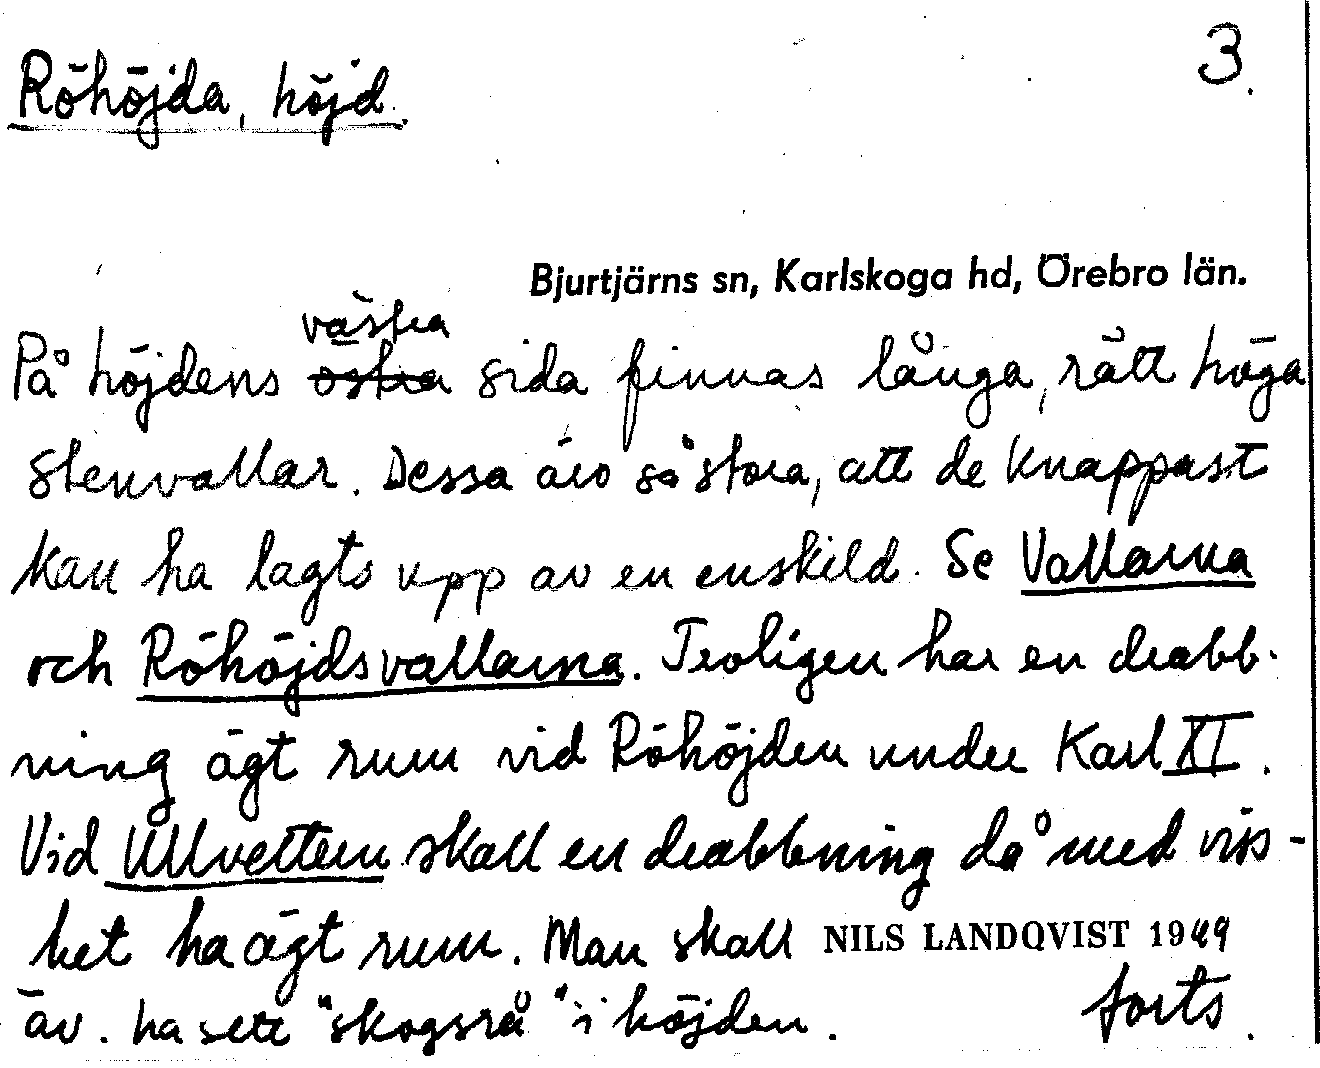 3.
Röhöjda, höjd.
Bjurtjärns sn, Karlskoga hd, Örebro län.
västra
På höjdens östra sida finnas långa, rätt höga
stenvallar. Dessa äro så stora, att de knappast
kan ha lagts upp av en enskild. Se Vallarna
och Röhöjdsvallarna. Troligen har en drabb-
ning ägt rum vid Röhöjden under Karl XI.
Vid Ullvettern skall en drabbning då med viss-
het ha ägt rum. Man skall NILS LANDQVIST 1949
äv. ha sett "skogsrå" i höjden. forts.